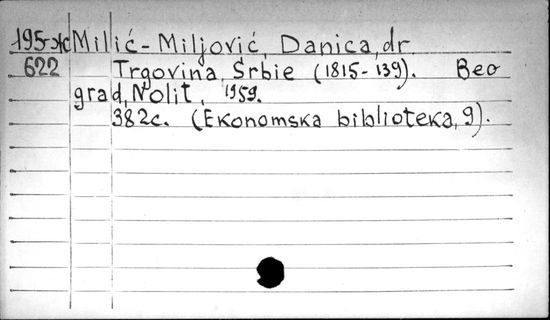 195-ж Milić-Miljović, Danica, dr
622 Trgovina, Srbie (1815-139). Beo
grad, Nolit, 1959.
382c. (Ekonomska biblioteka, 9).